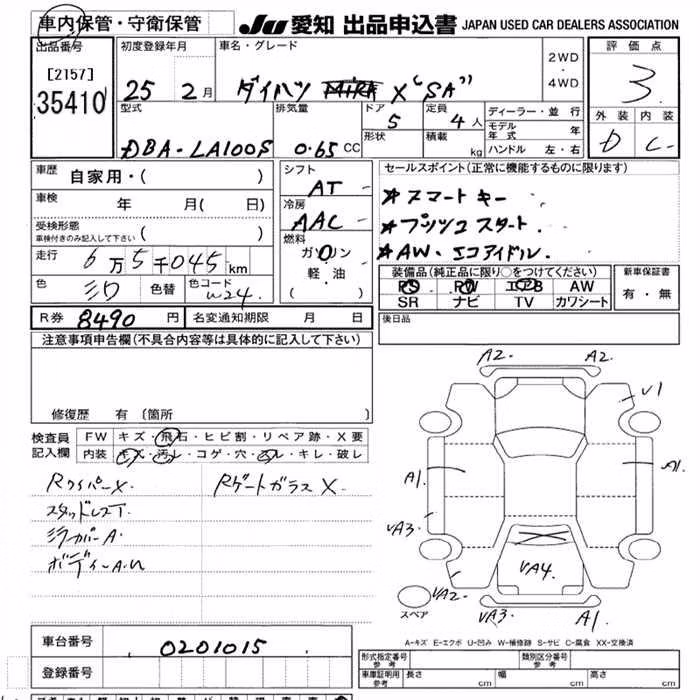 車内保管・守衛保管
JU 愛知 出品申込書 JAPAN USED CAR DEALERS ASSOCIATION
出品番号
[2157]
35410
初度登録年月
25 2月
車名・グレード
ダイハツ MIRA X "SA"
2WD
・
4WD
評価点
3
外装 内装
D C-
型式
DBA-LA100S
排気量
0.65 CC
ドア
5
形状
定員
4人
積載
kg
ディーラー・並行
モデル年式 年
ハンドル 左・右
車歴 自家用・( )
車検 年 月( 日)
受検形態
車検付きのみ記入して下さい ( )
走行 6万5千045 km
色 シロ 色替 色コード W24.
シフト
AT
冷房
AAC
燃料
ガソリン
軽・油
( )
セールスポイント(正常に機能するものに限ります)
★スマートキー
★プッシュスタート.
★AW. エコアイドル.
装備品(純正品に限り○をつけてください)
PS PW エアB AW
SR ナビ TV カワシート
新車保証書
有・無
後日品
R券 8490 円 名変通知期限 月 日
注意事項申告欄(不具合内容等は具体的に記入して下さい)
修復歴 有 〔箇所 〕
検査員記入欄
FW キズ・飛石・ヒビ割・リペア跡・X要
内装 キズ・汚レ・コゲ・穴・スレ・キレ・破レ
Rワイパー X.
Rゲートガラス X.
スタッドレスT.
ミラーカバーA.
ボディーA.U
A2. A2.
V1
A1. A1.
VA3.
VA2.
VA4.
VA3. A1.
スペア
A-キズ E-エクボ U-凹み W-補修跡 S-サビ C-腐食 XX-交換済
車台番号 0201015
登録番号
形式指定番号 参考
類別区分番号 参考
車庫証明用 参考 長さ cm 幅 cm 高さ cm